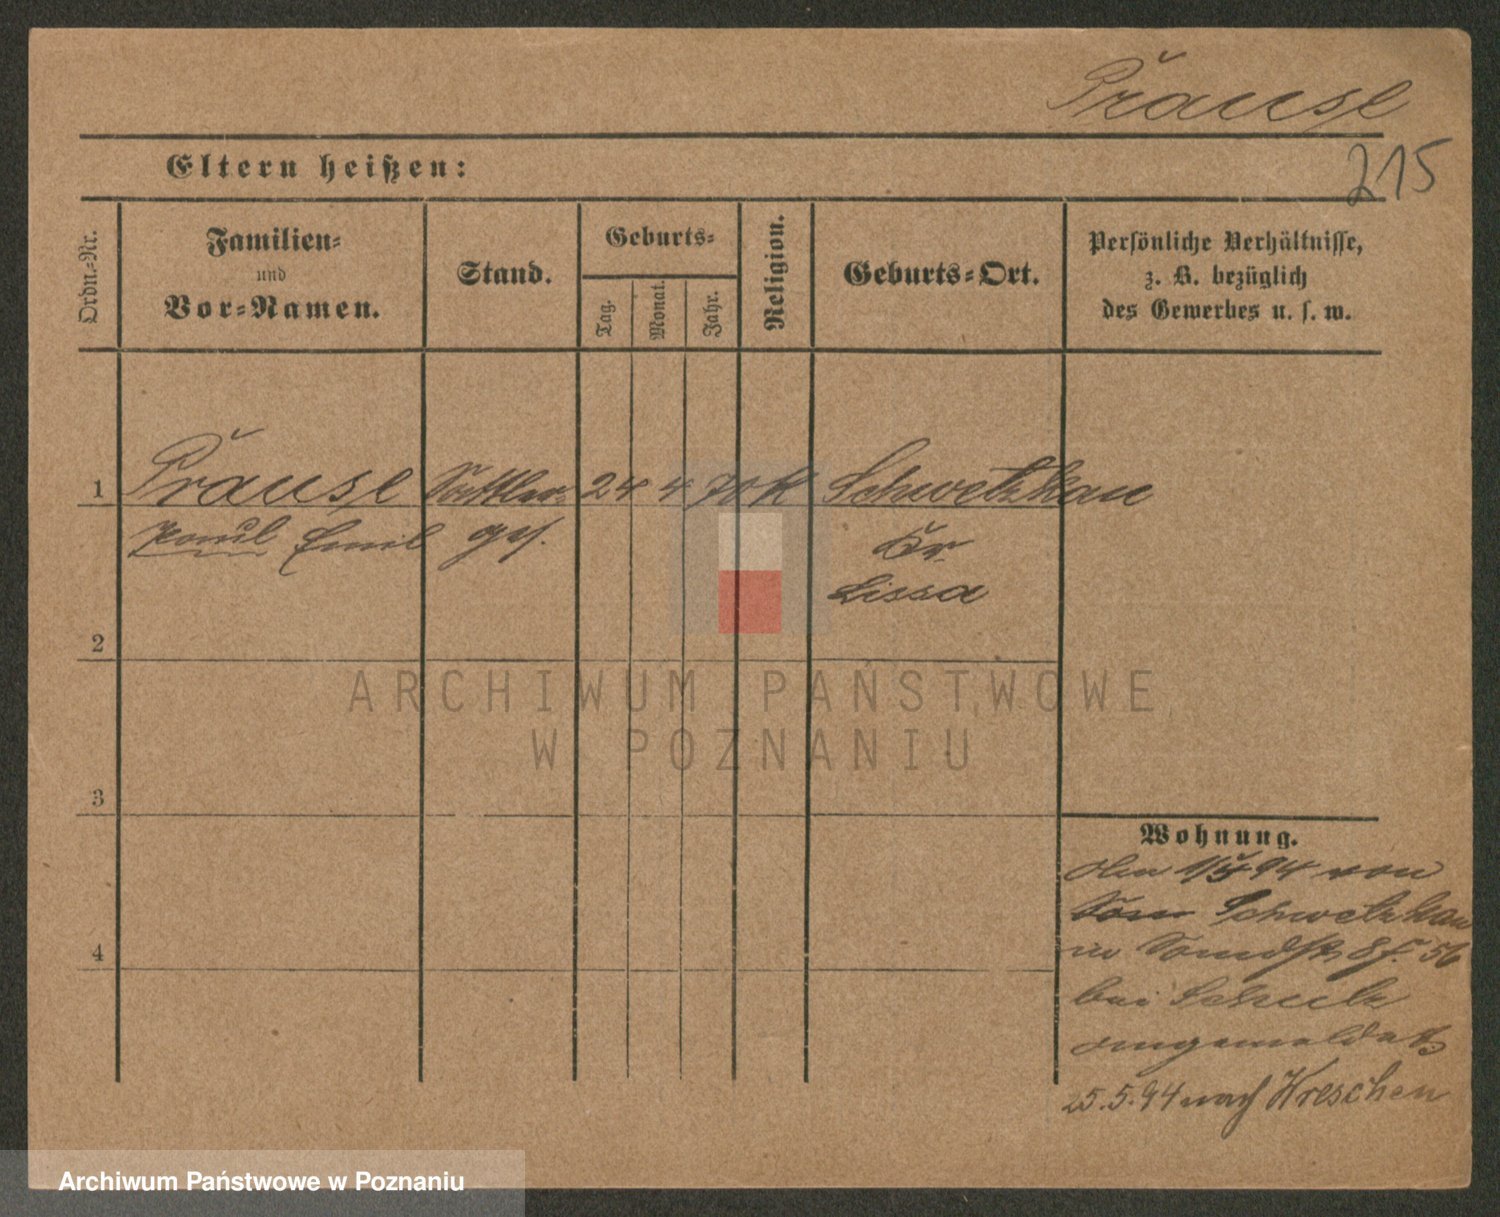 Präuse
215
Eltern heißen:
Ordn.-Nr.
Familien-
und
Vor-Namen.
Stand.
Geburts-
Tag.
Monat.
Jahr.
Religion.
Geburts-Ort.
Persönliche Verhältnisse,
z. B. bezüglich
des Gewerbes u. s. w.
1 Präuse Sattler- 24 4 70 K Schwetzkau
Paul Emil ges. Kr.
Lissa
2
ARCHIWUM PAŃSTWOWE
W POZNANIU
3
Wohnung.
Den 1/5 94 von
Schwetzkau
in 8 f. 56
bei Schulz
angemeldet
4
25.5.94 nach Wreschen
Archiwum Państwowe w Poznaniu